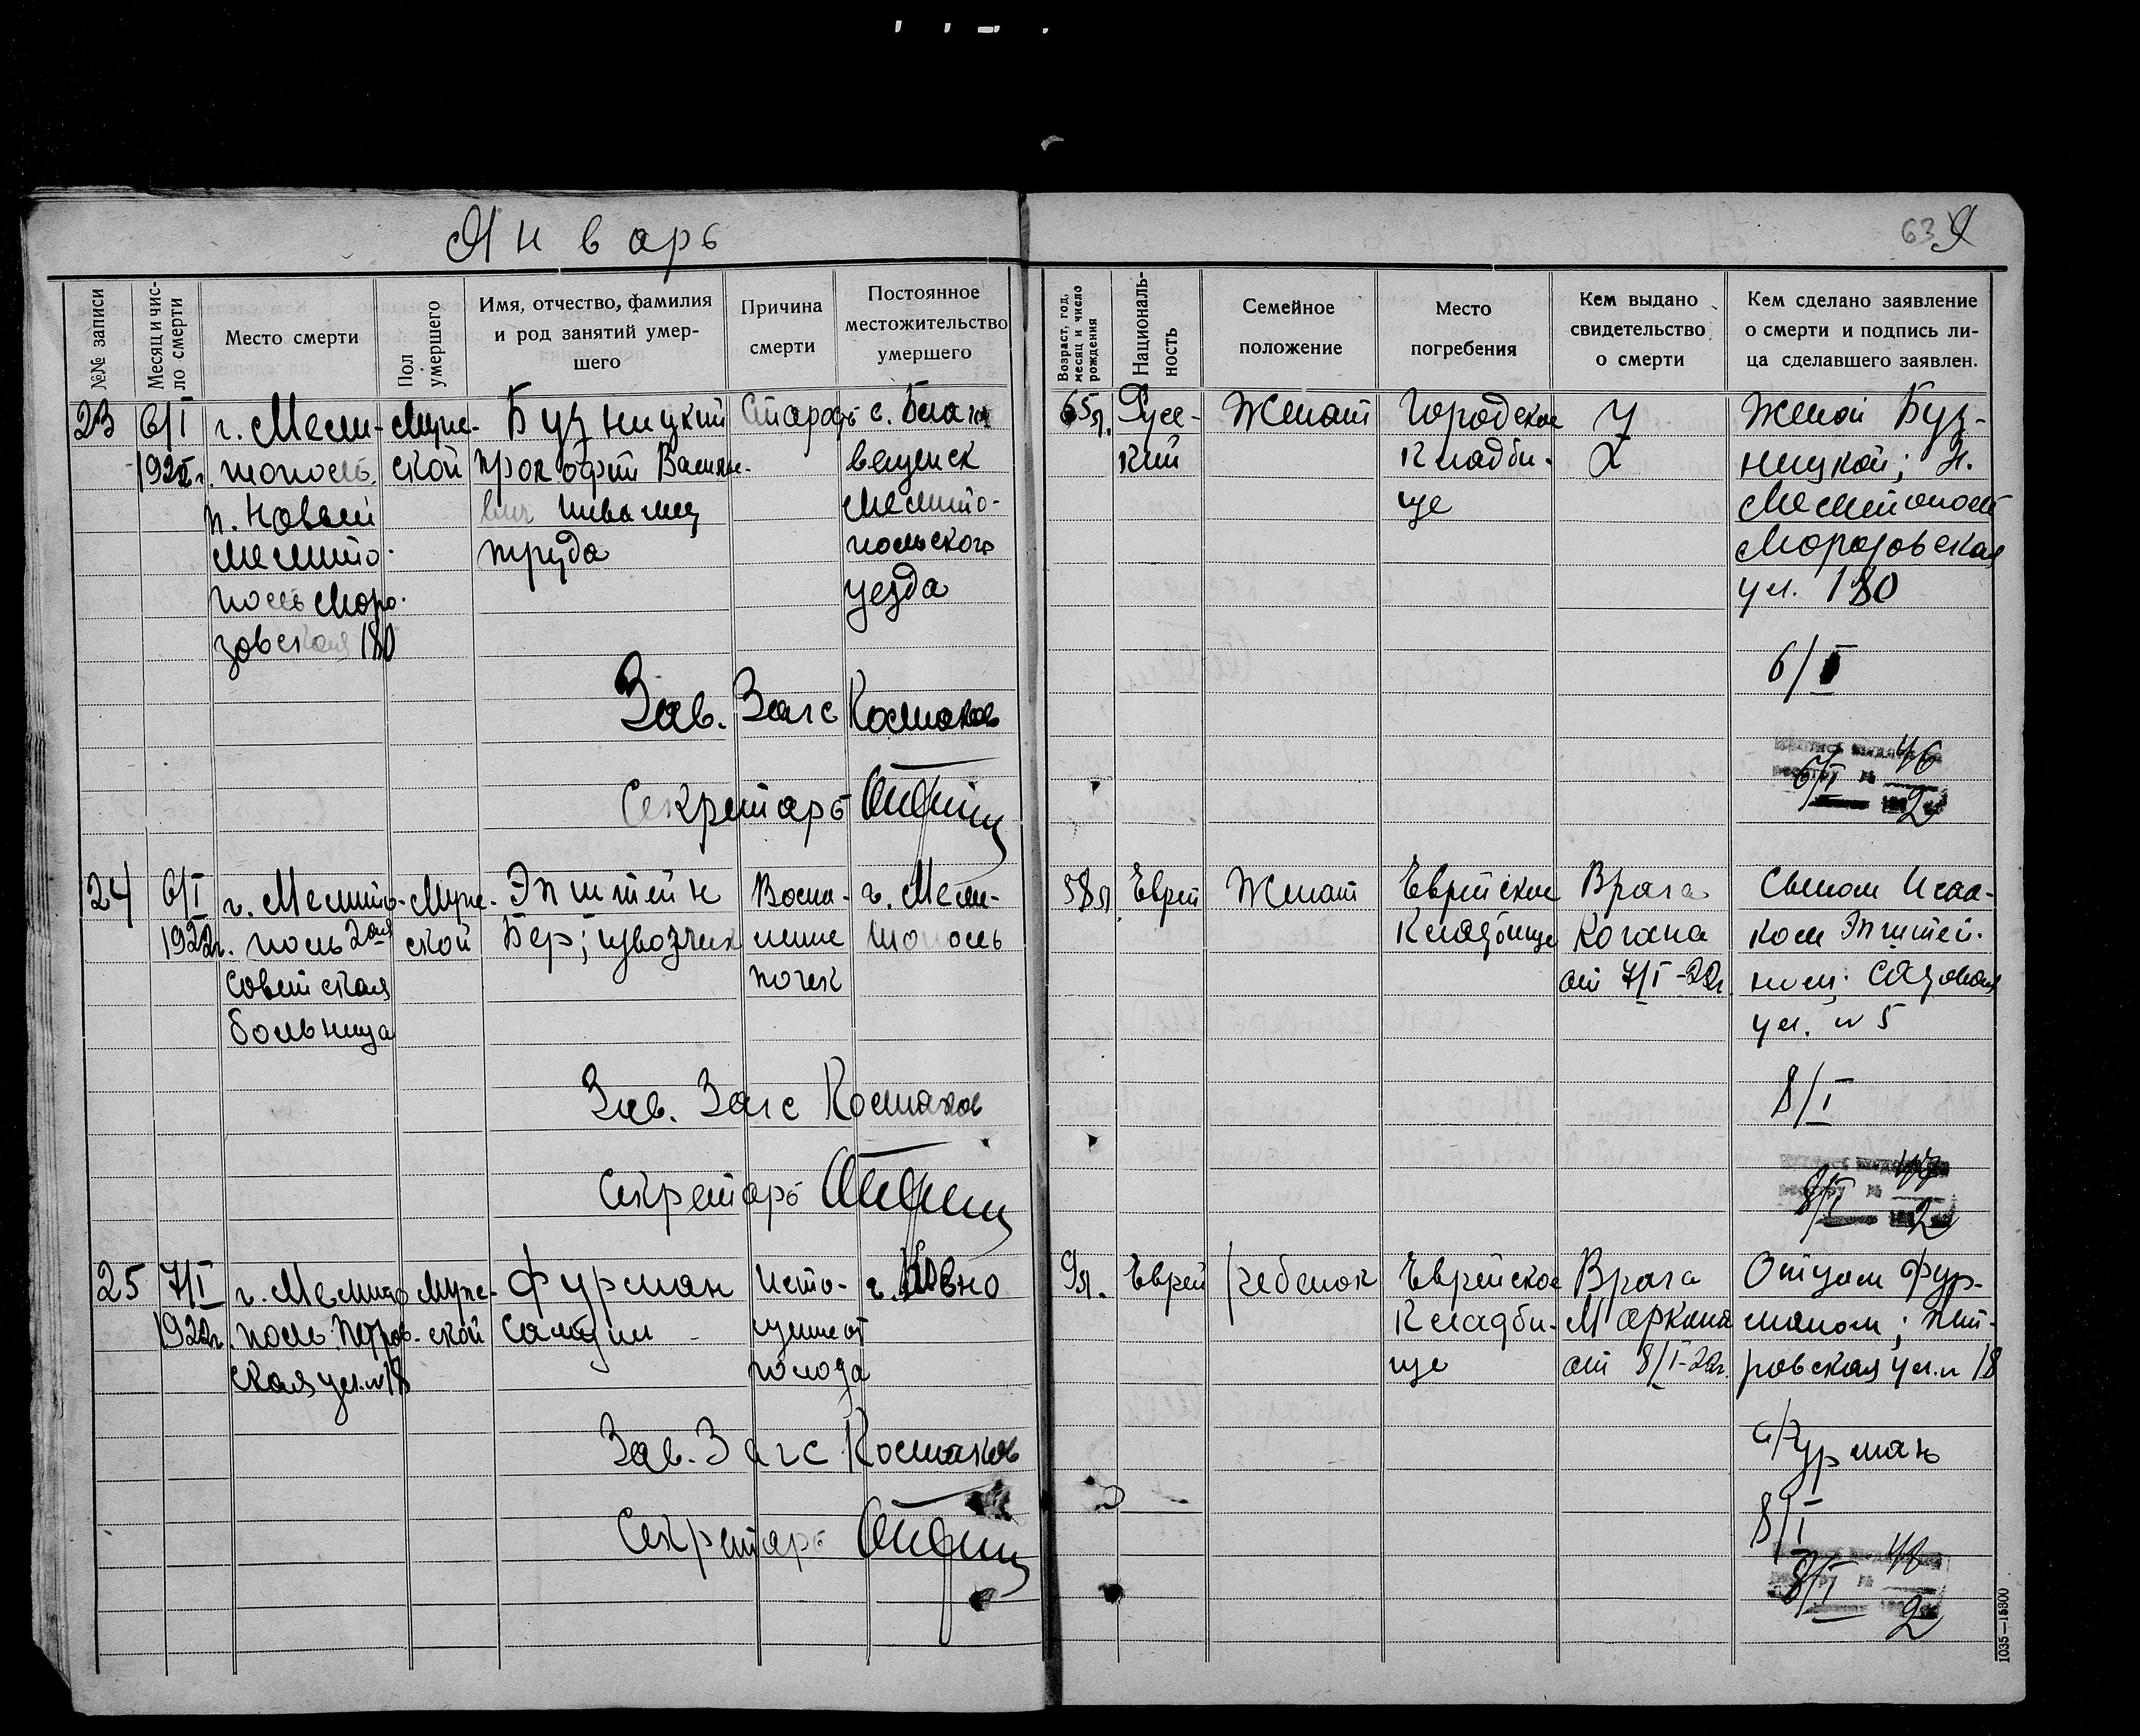 Январь
63
№№ записи
Месяц и чис-
ло смерти
Место смерти
Пол
умершего
Имя, отчество, фамилия
и род занятий умер-
шего
Причина
смерти
Постоянное
местожительство
умершего
Возраст, год,
месяц и число
рождения
Националь-
ность
Семейное
положение
Место
погребения
Кем выдано
свидетельство
о смерти
Кем сделано заявление
о смерти и подпись ли-
ца сделавшего заявлен.
23
6/I
1922г.
г. Мели-
тополь
п. Новый
Мелито-
поль Моро-
зовская 180
Муж-
ской
Бузницкий
Прокофий Василье-
вич инвалид
труда
Старость
с.
вещенск
Мелито-
польского
уезда
65л.
Русс-
кий
Женат
Городское
кладби-
ще
Женой Буз-
ницкой; Н.
Мелитополь
Морозовская
ул. 180
6/I
Зав. Загс Костаков
Секретарь
6/I 46
2
24
6/I
1922г.
г. Мелито-
поль 2ая
Советская
больница
Муж-
ской
Эпштейн
Бер; извозчик
Воспа-
ление
почек
г. Мели-
тополь
58л.
Еврей
Женат
Еврейское
Кладбище
Врача
Когана
от 7/I-22г.
Сыном Исаа-
ком Эпштей-
ном; Садовая
ул. № 5
8/I
Зав. Загс Костаков
Секретарь
8/I 47
2
25
7/I
1922г.
г. Мелито
поль Петров-
ская ул. № 18
Муж-
ской
Фурман
Исто-
щение от
голода
г. Ковно
9л.
Еврей
ребенок
Еврейское
Кладби-
ще
Врача
Маркина
от 8/I-22г.
Отцом Фур-
маном; Пет-
ровская ул. № 18
Фурман
8/I
Зав. Загс Костаков
Секретарь
8/I 48
2
1035—15300